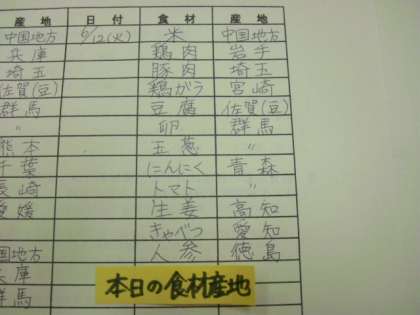 産地 日付 食材 産地
中国地方 6/12(火) 米 中国地方
兵庫 鶏肉 岩手
埼玉 豚肉 埼玉
佐賀(豆) 鶏ガラ 宮崎
群馬 豆腐 佐賀(豆)
〃 卵 群馬
熊本 玉葱 〃
千葉 にんにく 青森
長崎 トマト 〃
愛媛 生姜 高知
きゃべつ 愛知
国地方 人参 徳島
兵庫
群馬
本日の食材産地